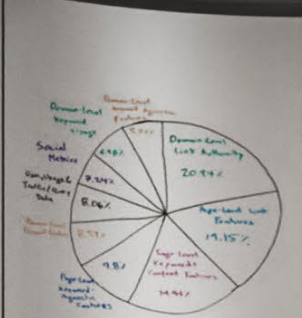 Domain-Level
Keyword Agnostic
Features
Domain-Level
Keyword
Usage
Social
Metrics
7.24%
User, Usage &
Traffic/Query
Data
8.06%
Domain-Level
Brand
8.59%
Page-Level
Keyword-
Agnostic
Features
9.8%
Page-Level
Keywords
Content Features
14.94%
Page-Level Link
Features
19.15%
Domain-Level
Link Authority
20.94%